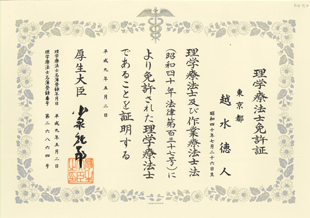 理学療法士免許証
東京都
越水徳人
昭和四十年七月二十六日生
理学療法士及び作業療法士法
(昭和四十年法律第百三十七号)に
より免許された理学療法士
であることを証明する
平成九年五月二日
厚生大臣 小泉純一郎
理学療法士名簿登録年月日 平成九年五月二日
理学療法士名簿登録番号 第二六八六四号